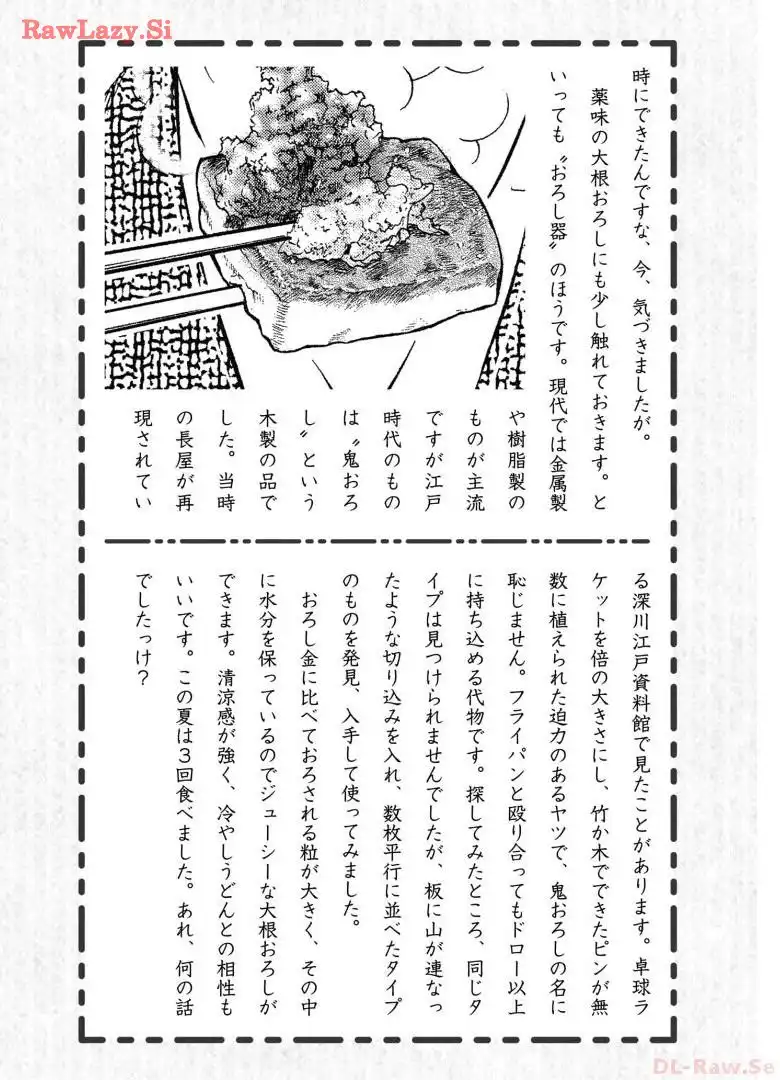 RawLazy.Si
時にできたんですな、今、気づきましたが。
薬味の大根おろしにも少し触れておきます。と
いっても〝おろし器〟のほうです。現代では金属製
や樹脂製の
ものが主流
ですが江戸
時代のもの
は〝鬼おろ
し〟という
木製の品で
した。当時
の長屋が再
現されてい
る深川江戸資料館で見たことがあります。卓球ラ
ケットを倍の大きさにし、竹か木でできたピンが無
数に植えられた迫力のあるヤツで、鬼おろしの名に
恥じません。フライパンと殴り合ってもドロー以上
に持ち込める代物です。探してみたところ、同じタ
イプは見つけられませんでしたが、板に山が連なっ
たような切り込みを入れ、数枚平行に並べたタイプ
のものを発見、入手して使ってみました。
おろし金に比べておろされる粒が大きく、その中
に水分を保っているのでジューシーな大根おろしが
できます。清涼感が強く、冷やしうどんとの相性も
いいです。この夏は３回食べました。あれ、何の話
でしたっけ？
DL-Raw.Se